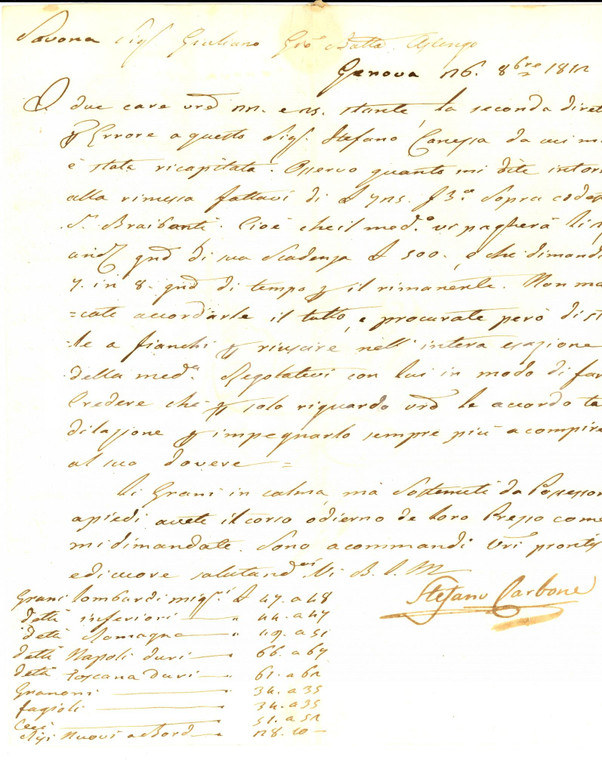 Savona Sig.r Giuliano Gio Batta
Genova 26. 8bre 1812
due care vre e stante, la seconda diret
Errore a questo Sig.r Stefano Canessa da cui mi
è stata ricapitata. Osservo quanto mi dite intor
alla rimessa fattavi di Sopra codes
S. Braibanti. Cioè che il med.o vi pagherà
di sua Scadenza £ 500. e che dimand
7. in 8. di tempo il rimanente. Non ma
=cate accordarle il tutto, e procurate però di st
le a fianchi riuscire nell' intera esazione
della med.a Regolatevi con lui in modo di far
Credere che solo riguardo le accordo ta
dilazione impegnarlo sempre più a compire
al suo dovere =
Li Grani in calma, ma Sostenuti da Possessor
a piedi avete il corso odierno de loro Prezzo come
mi dimandate. Sono a commandi Vri
ed di cuore salutand Vi B. L. M.
Stefano Carbone
Grani lombardi £ 47. a 48
detti inferiori 44. a 47
detti Romagna 49. a 51
detti Napoli duri 66. a 67
detti Toscana duri 61. a 62
Granoni 34. a 35
fagioli 34. a 35
Ceci 51. a 52
Nuovi a Bord 28.10